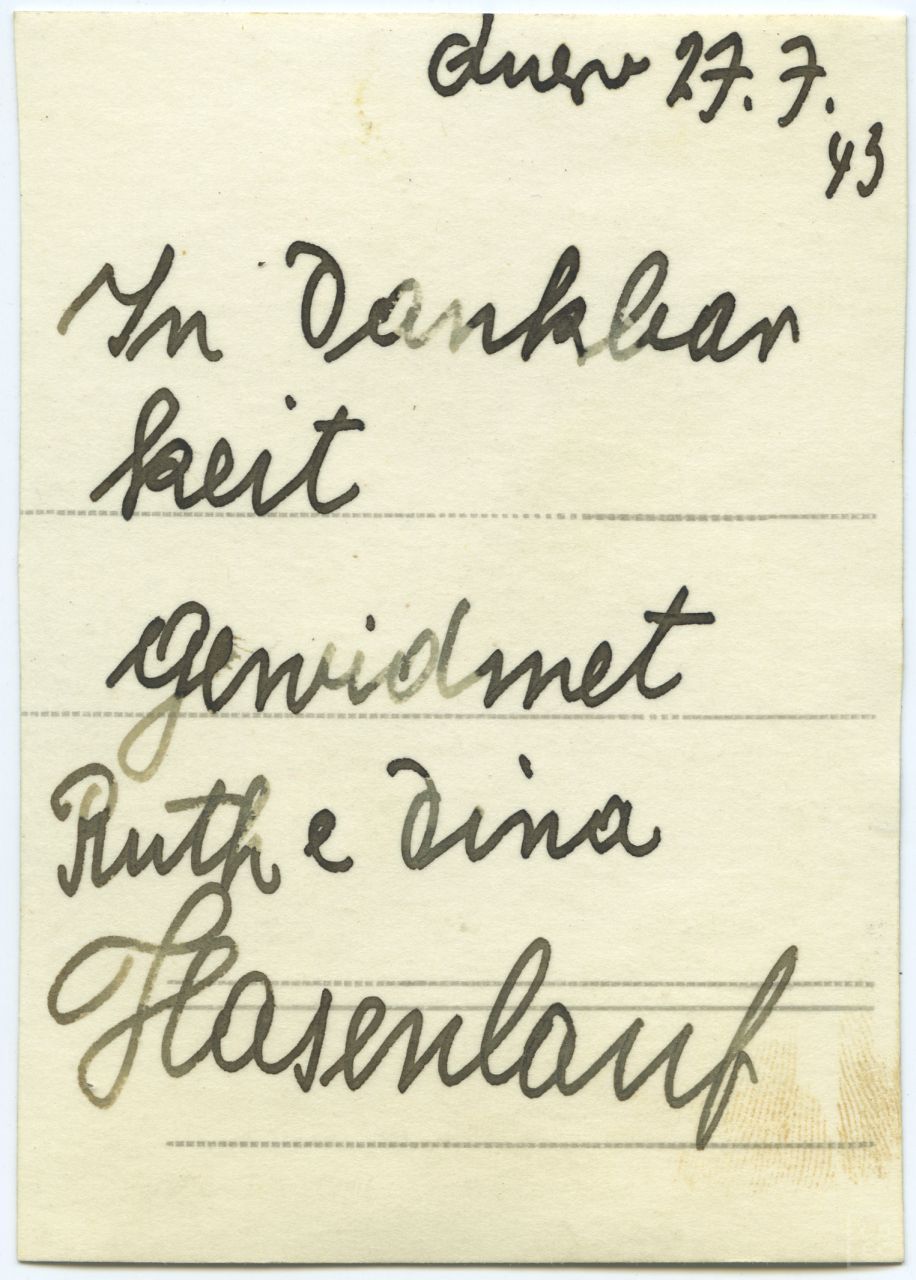 27. 7.
43
In Dankbar
keit
gewidmet
Ruth e Dina
Hasenlauf